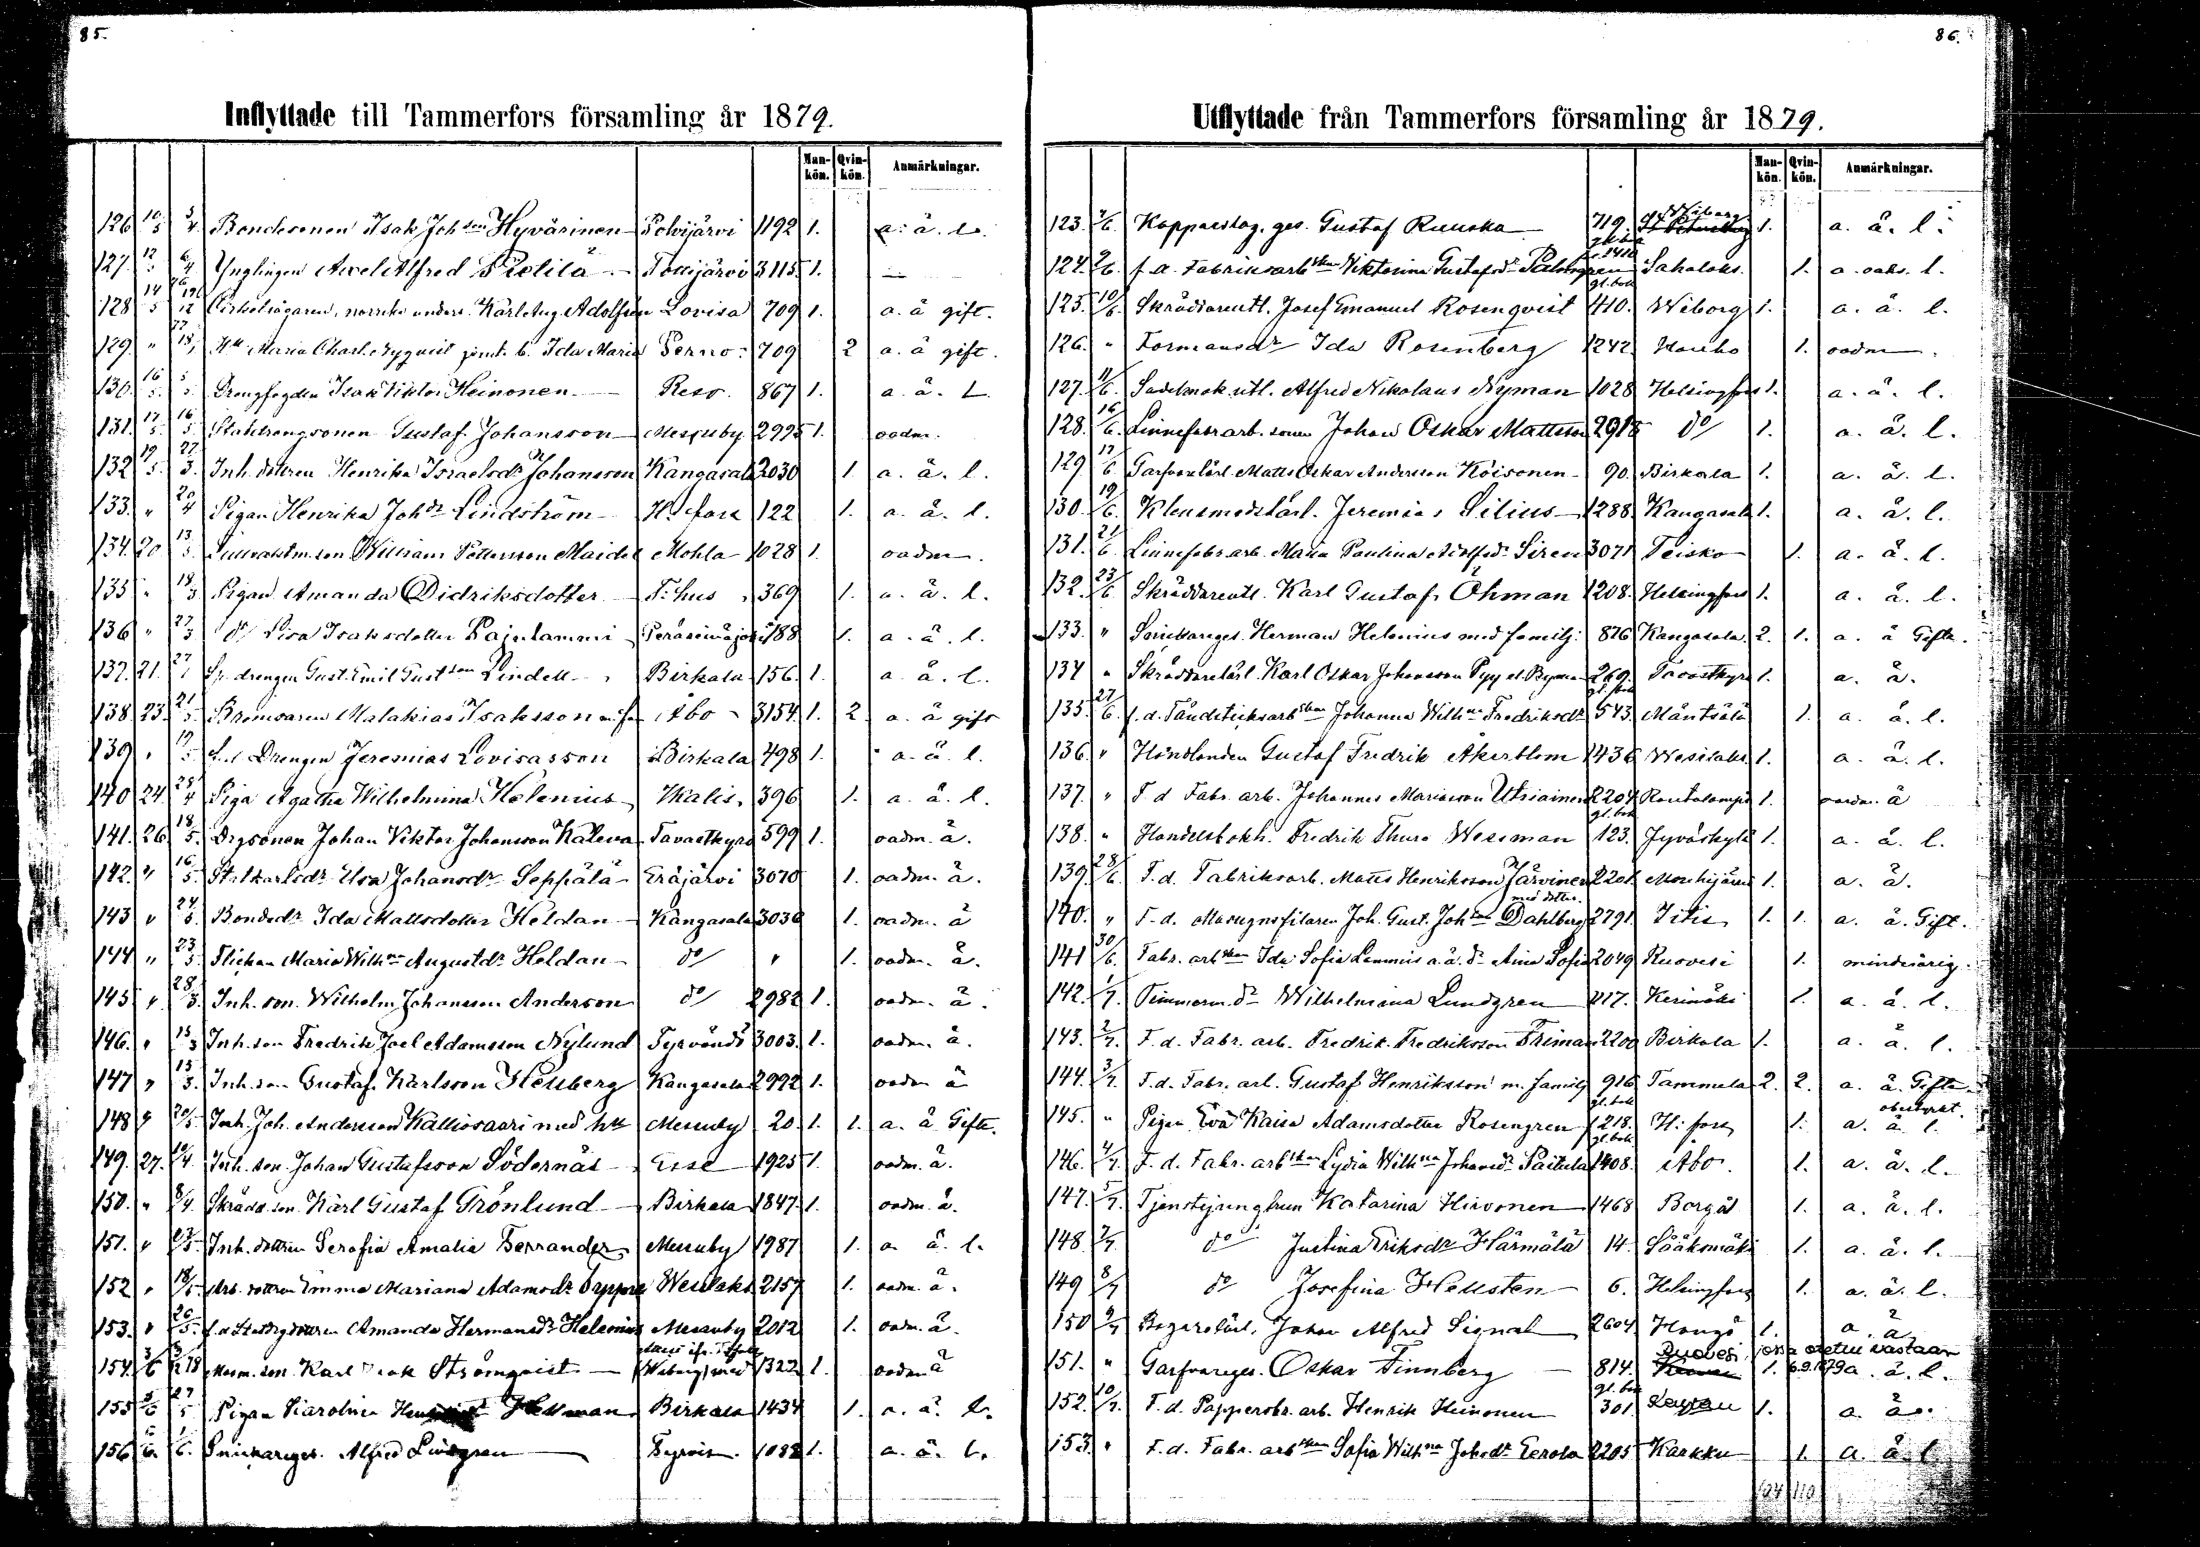 85.
Inflyttade till Tammerfors församling år 1879.
Mankön. Qvinkön. Anmärkningar.
126 10/5 3/4 Bondesonen Isak Johsson Hyvärinen Polvijärvi 1192 1. a. å. l.
127. 12/5 6/4 Ynglingen Axel Alfred Pietilä Tottijärvi 3115 1.
128 14/5 Cirkelsågaren, norrske unders. Karl Aug. Adolfsen Lovisa 709 1. a. å gift.
129. " Hu Maria Charl. Nyqvist jemte b. Ida Maria Perno 709 2 a. å gift.
130. 16/5 5/5 Drengfogden Isak Viktor Heinonen Reso 867 1. a. å. l.
131. 17/5 16/5 Staldrengsonen Gustaf Johansson Messuby 2995 1. oadm.
132 19/5 27/3 Inh. dottren Henrika Israelsdr Johansson Kangasala 2030 1 a. å. l.
133. " 20/4 Pigan Henrika Johdr Lindström H:fors 122 1. a. å. l.
134. 20 13/5 William Pettersson Maidel Mohla 1028 1. oadm.
135 " 18/3 Pigan Amanda Didriksdotter T:hus 369 1. a. å. l.
136 " 27/3 do Lisa Isaksdotter Pajulammi Peräseinäjoki 188 1. a. å. l.
137. 21. 27/1 Sp. drengen Gust. Emil Gustson Lindell Birkala 156 1. a. å. l.
138 23. 21/5 Bromsaren Malakias Isaksson m. f. Åbo 3154 1. 2 a. å gift
139 " 19/5 Drengen Jeremias Lovisasson Birkala 498 1. a. å. l.
140 24. 28/4 Piga Agatha Wilhelmina Helenius Ikalis 396 1. a. å. l.
141. 26. 18/5 Drgsonen Johan Viktor Johansson Kaleva Tavastkyro 599 1. oadm. å.
142. " 16/5 Stalkarlsdr Eva Johansdr Seppälä Eräjärvi 3070 1. oadm. å.
143 " 24/5 Bondedr Ida Mattsdotter Heldan Kangasala 3036 1. oadm. å
144 " 23/5 Flickan Maria Wilhna Augustdr Heldan do " 1. oadm. å.
145 " 28/3 Inh. son. Wilhelm Johansson Anderson do 2982 1. oadm. å.
146. " 15/3 Inh. son Fredrik Joel Adamsson Nylund Tyrvändö 3003. 1. oadm. å.
147 " 15/3 Inh. son Gustaf Karlsson Hellberg Kangasala 2992 1. oadm å
148 " 20/5 Inh. Joh. Andersson Kalliosaari med hu Messuby 20. 1. 1. a. å Gifte.
149. 27. 10/4 Inh. son Johan Gustafsson Södernäs Esse 1925 1. oadm. å.
150. " 8/4 Skrädd. son Karl Gustaf Grönlund Birkala 1847. 1. oadm. å.
151. " 23/5 Inh. dottren Serafia Amalia Ferrander Messuby 1987 1. a å. l.
152 " 18/5 Arb. dottren Emma Mariana Adamsdr Wesilaks 2157 1. oadm. å.
153. " 26/5 Amanda Hermansdr Helenius Messuby 2012 1. oadm. å.
154. 3/6 Karl Isak Strömqvist Wiborg 1322 1. oadm å
155 5/6 27/5 Pigan Karolina Hellman Birkala 1434 1. a. å. l.
156 6/6 1/6 Snickareges. Alfred Lindgren Tyrvis 1082 1. a. å. l.
86.
Utflyttade från Tammerfors församling år 1879.
Mankön. Qvinkön. Anmärkningar.
Wiborg
123. 2/6 Kopparslag. ges. Gustaf Ruuska 719. 1. a. å. l.
124. 2/6 f. d. Fabriksarbskan Viktorina Gustafsdr Palmgren 1410 Sahalaks. 1. a. oaks. l.
125. 10/6 Skräddareutl. Josef Emanuel Rosenqvist 410. Wiborg 1. a. å. l.
126. " Formansdr Ida Rosenberg 1242 Hauho 1. oadm.
127. 11/6 Sadelmak. utl. Alfred Nikolaus Nyman 1028 Helsingfors 1. a. å. l.
128. 16/6 Linnefabr. arb. sonen Johan Oskar Mattsson 2918 do 1. a. å. l.
129 17/6 Garfvarelärl. Matts Oskar Andersson Koisonen 90. Birkala 1. a. å. l.
130. 19/6 Klensmedslärl. Jeremias Silius 1288. Kangasala 1. a. å. l.
131. 21/6 Linnefabr. arb. Maria Paulina Adolfsdr Siren 3071 Teisko 1. a. å. l.
132. 23/6 Skräddareutl. Karl Gustaf Öhman 1208. Helsingfors 1. a. å. l.
133. " Snickareges. Herman Helenius med familj 876 Kangasala 2. 1. a. å Gifte.
134 " Skräddarelärl. Karl Oskar Johansson Pyy el. Byman 269. Tavastkyro 1. a. å.
gl. bok
135. 27/6 f. d. Tändsticksarbskan Johanna Wilhna Fredriksdr 543. Mäntsälä 1. a. å. l.
136. " Handlanden Gustaf Fredrik Åkerblom 1436 Wesilaks 1. a. å. l.
137. " F. d. Fabr. arb. Johannes Mariasson Utriainen 2204 Rautalampi 1. oadm. å
gl. bok
138. " Handelsbokh. Fredrik Thure Wessman 123. Jyväskylä 1. a. å. l.
139. 28/6 F. d. Fabriksarb. Matts Henriksson Järvinen 2201 Mouhijärvi 1. a. å.
med dotter.
140. " F. d. Masugnsfilaren Joh. Gust. Johsson Dahlberg 2791. Iitis 1. 1. a. å. Gift.
141 30/6 Fabr. arbskan Ida Sofia Lemmits a. ä. dr Aina Sofia 2049 Ruovesi 1. minderårig.
142. 1/7. Timmerm. dr Wilhelmina Lundgren 217. Kerimäki 1. a. å. l.
143. 2/7. F. d. Fabr. arb. Fredrik Fredriksson Friman 2200 Birkala 1. a. å. l.
144. 3/7. F. d. Fabr. arb. Gustaf Henriksson m. familj 916 Tammela 2. 2. a. å. Gifte
gl. bok
145. " Pigan Eva Kaisa Adamsdotter Rosengren 1218. H:fors 1. a. å l.
gl. bok
146. 4/7. F. d. Fabr. arbskan Lydia Wilhna Johansdr Paitula 1408. Åbo. 1. a. å. l.
147. 5/7. Tjenstejungfrun Katarina Hirvonen 1468 Borgå 1. a. å. l.
148 7/7 do Justina Eriksdr Härmälä 14. Sääksmäki 1. a. å. l.
149 8/7 do Josefina Hellsten 6. Helsingfors 1. a. å. l.
150 9/7 Bagarelärl. Johan Alfred Signal 2604 Hangö 1. a. å.
Ruovesi, jossa otettu vastaan
151. " Garfvareges. Oskar Finnberg 814. 1. 6.9.1879 a. å. l.
gl. bok
152. 10/7. F. d. Pappersbr. arb. Henrik Heinonen 301. 1. a. å.
153. " F. d. Fabr. arbskan Sofia Wilhna Johsdr Eerola 2205 Karkku 1. a. å l
124 110